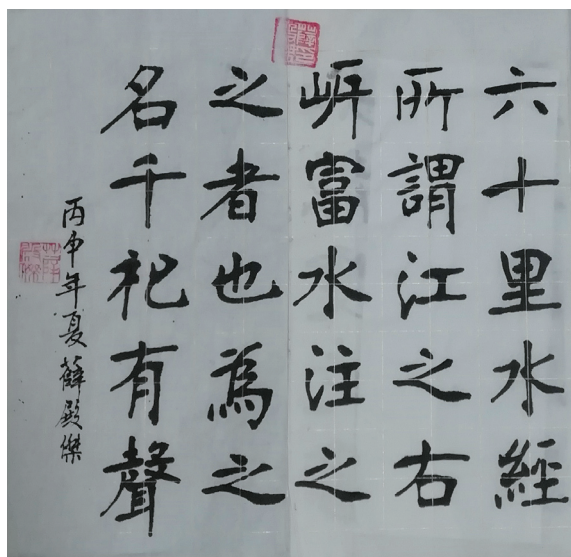 六十里水經
所謂江之右
岍富水注之
之者也為之
名千祀有聲
丙申年夏薛殿傑